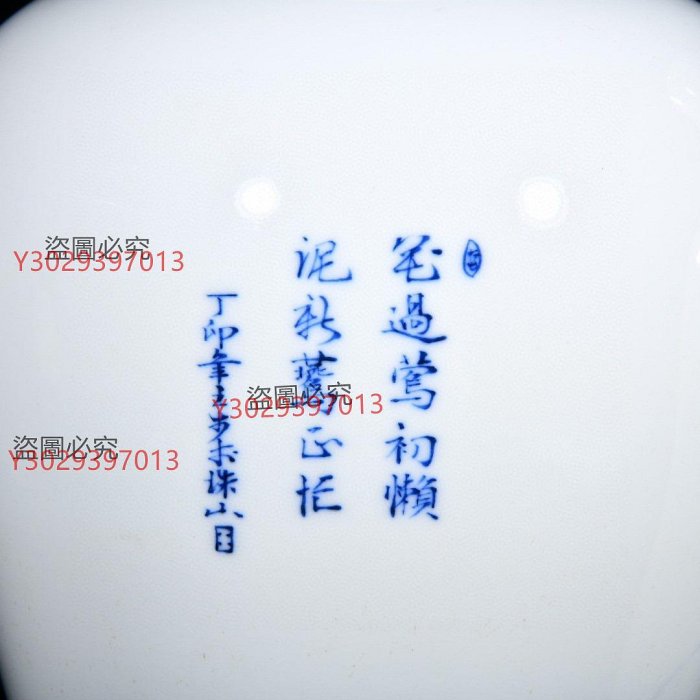 花過鶯初懶
泥新燕正忙
丁卯年王步於珠山
盜圖必究
Y3029397013
盜圖必究
Y3029397013
盜圖必究
Y3029397013